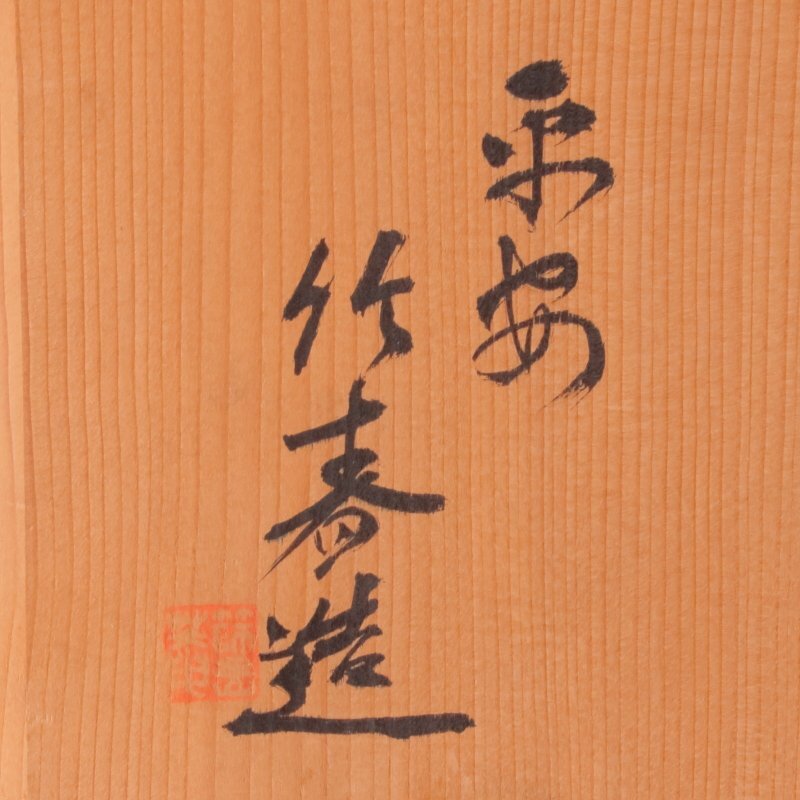 平安
竹春造